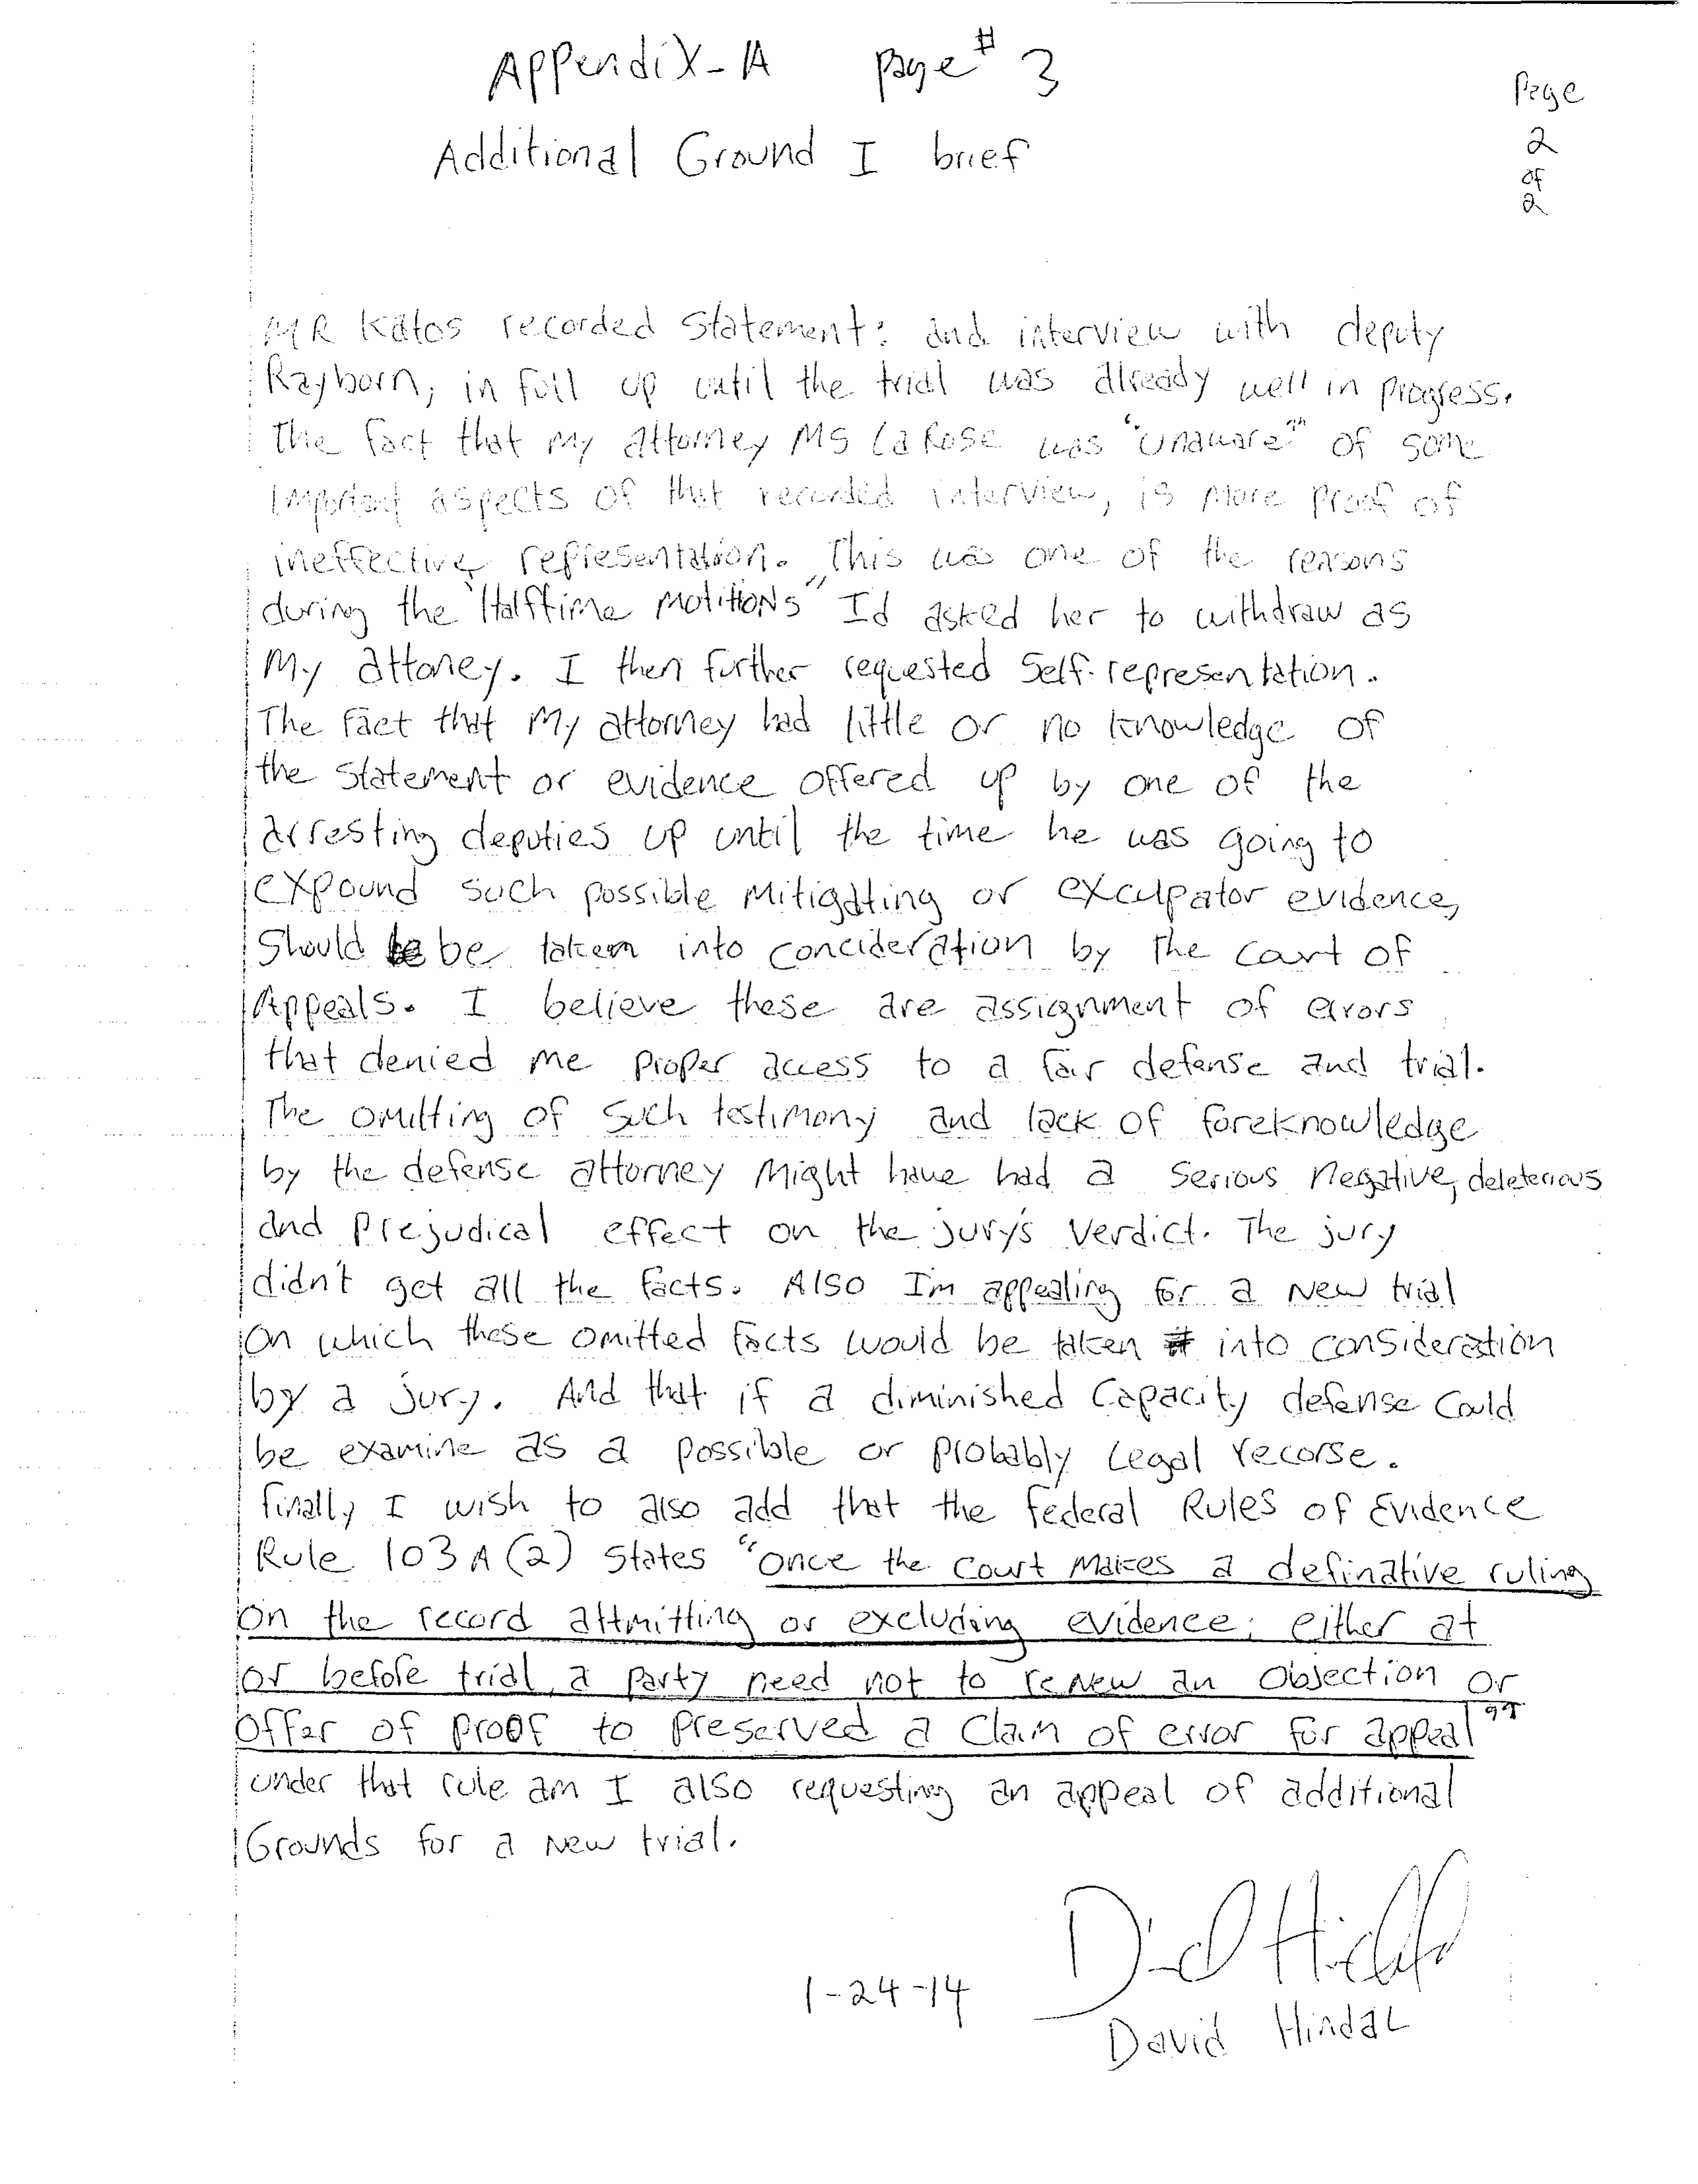 Appendix-A page # 3
Page
2
of
2
Additional Ground I brief
MR Katos recorded statement: and interview with deputy
Rayborn, in full up until the trial was already well in progress.
The fact that my attorney MS LaRose was "unaware" of some
important aspects of that recorded interview, is more proof of
ineffective representation. This was one of the reasons
during the "Halftime Motitions" Id asked her to withdraw as
My attoney. I then further requested Self-representation.
The fact that my attorney had little or no knowledge of
the statement or evidence offered up by one of the
arresting deputies up until the time he was going to
expound such possible mitigating or exculpator evidence,
should be taken into concideration by the Court of
Appeals. I believe these are assignment of errors
that denied me proper access to a fair defense and trial.
The omitting of such testimony and lack of foreknowledge
by the defense attorney might have had a serious negative, deleterious
and prejudical effect on the jury's verdict. The jury
didn't get all the facts. Also I'm appealing for a new trial
on which these omitted facts would be taken into consideration
by a jury. And that if a diminished capacity defense could
be examine as a possible or probably legal recorse.
finally I wish to also add that the federal Rules of Evidence
Rule 103 A (2) states "once the court makes a definative ruling
on the record attmitting or excluding evidence; either at
or before trial, a party need not to renew an objection or
offer of proof to preserved a claim of error for appeal"
under that rule am I also requesting an appeal of additional
Grounds for a new trial.
1-24-14
David Hindal